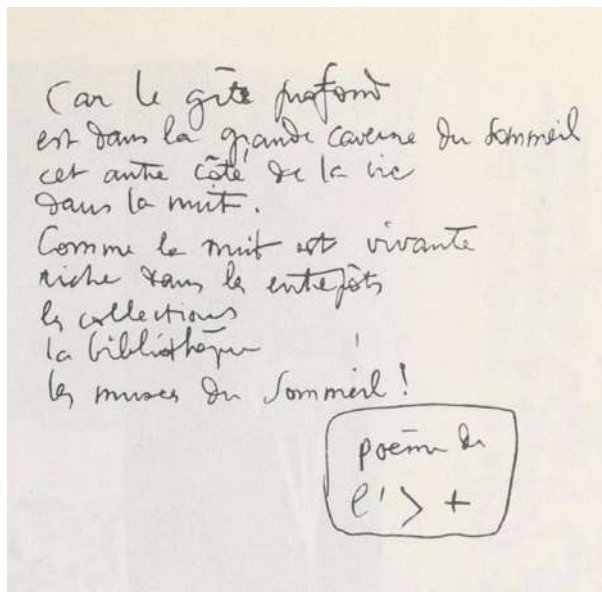 Car le gîte profond
est dans la grande caverne du sommeil
cet autre côté de la vie
dans la nuit.
Comme la nuit est vivante
riche dans les entrepôts
les collections
la bibliothèque
les muses du Sommeil !
poème de
l' > +